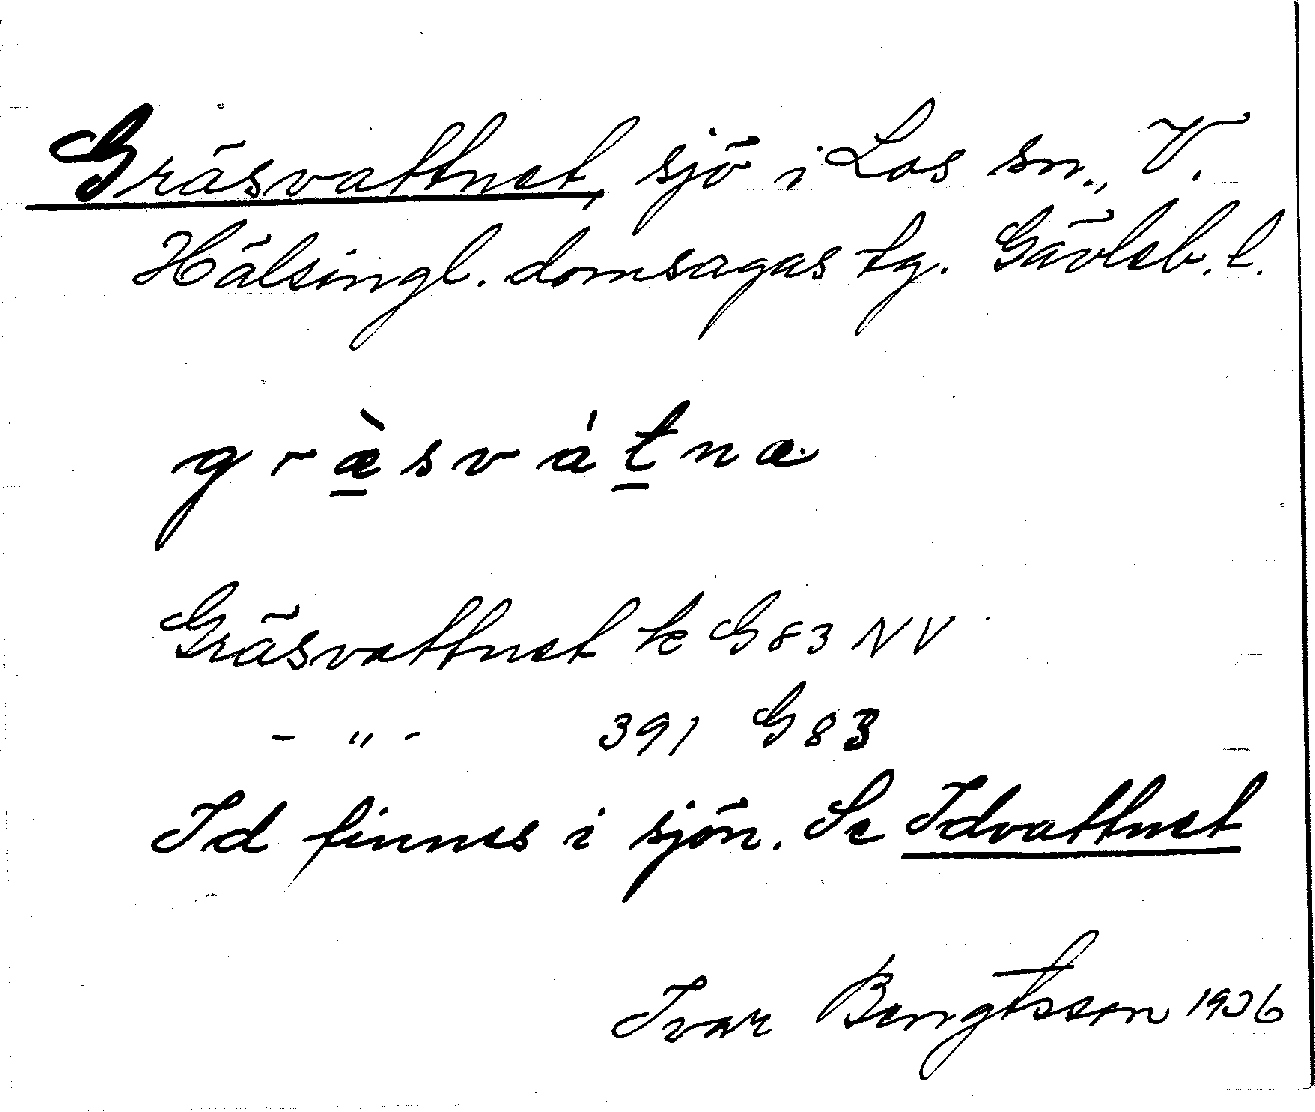 Gräsvattnet, sjö i Los sn., V.
Hälsingl. domsagas tg. Gävleb. l.
g r æ̀ s v á t n æ
Gräsvattnet k G 83 NV
- " - 391 G 83
Id finnes i sjön. Se Idvattnet
Ivar Bengtsson 1936